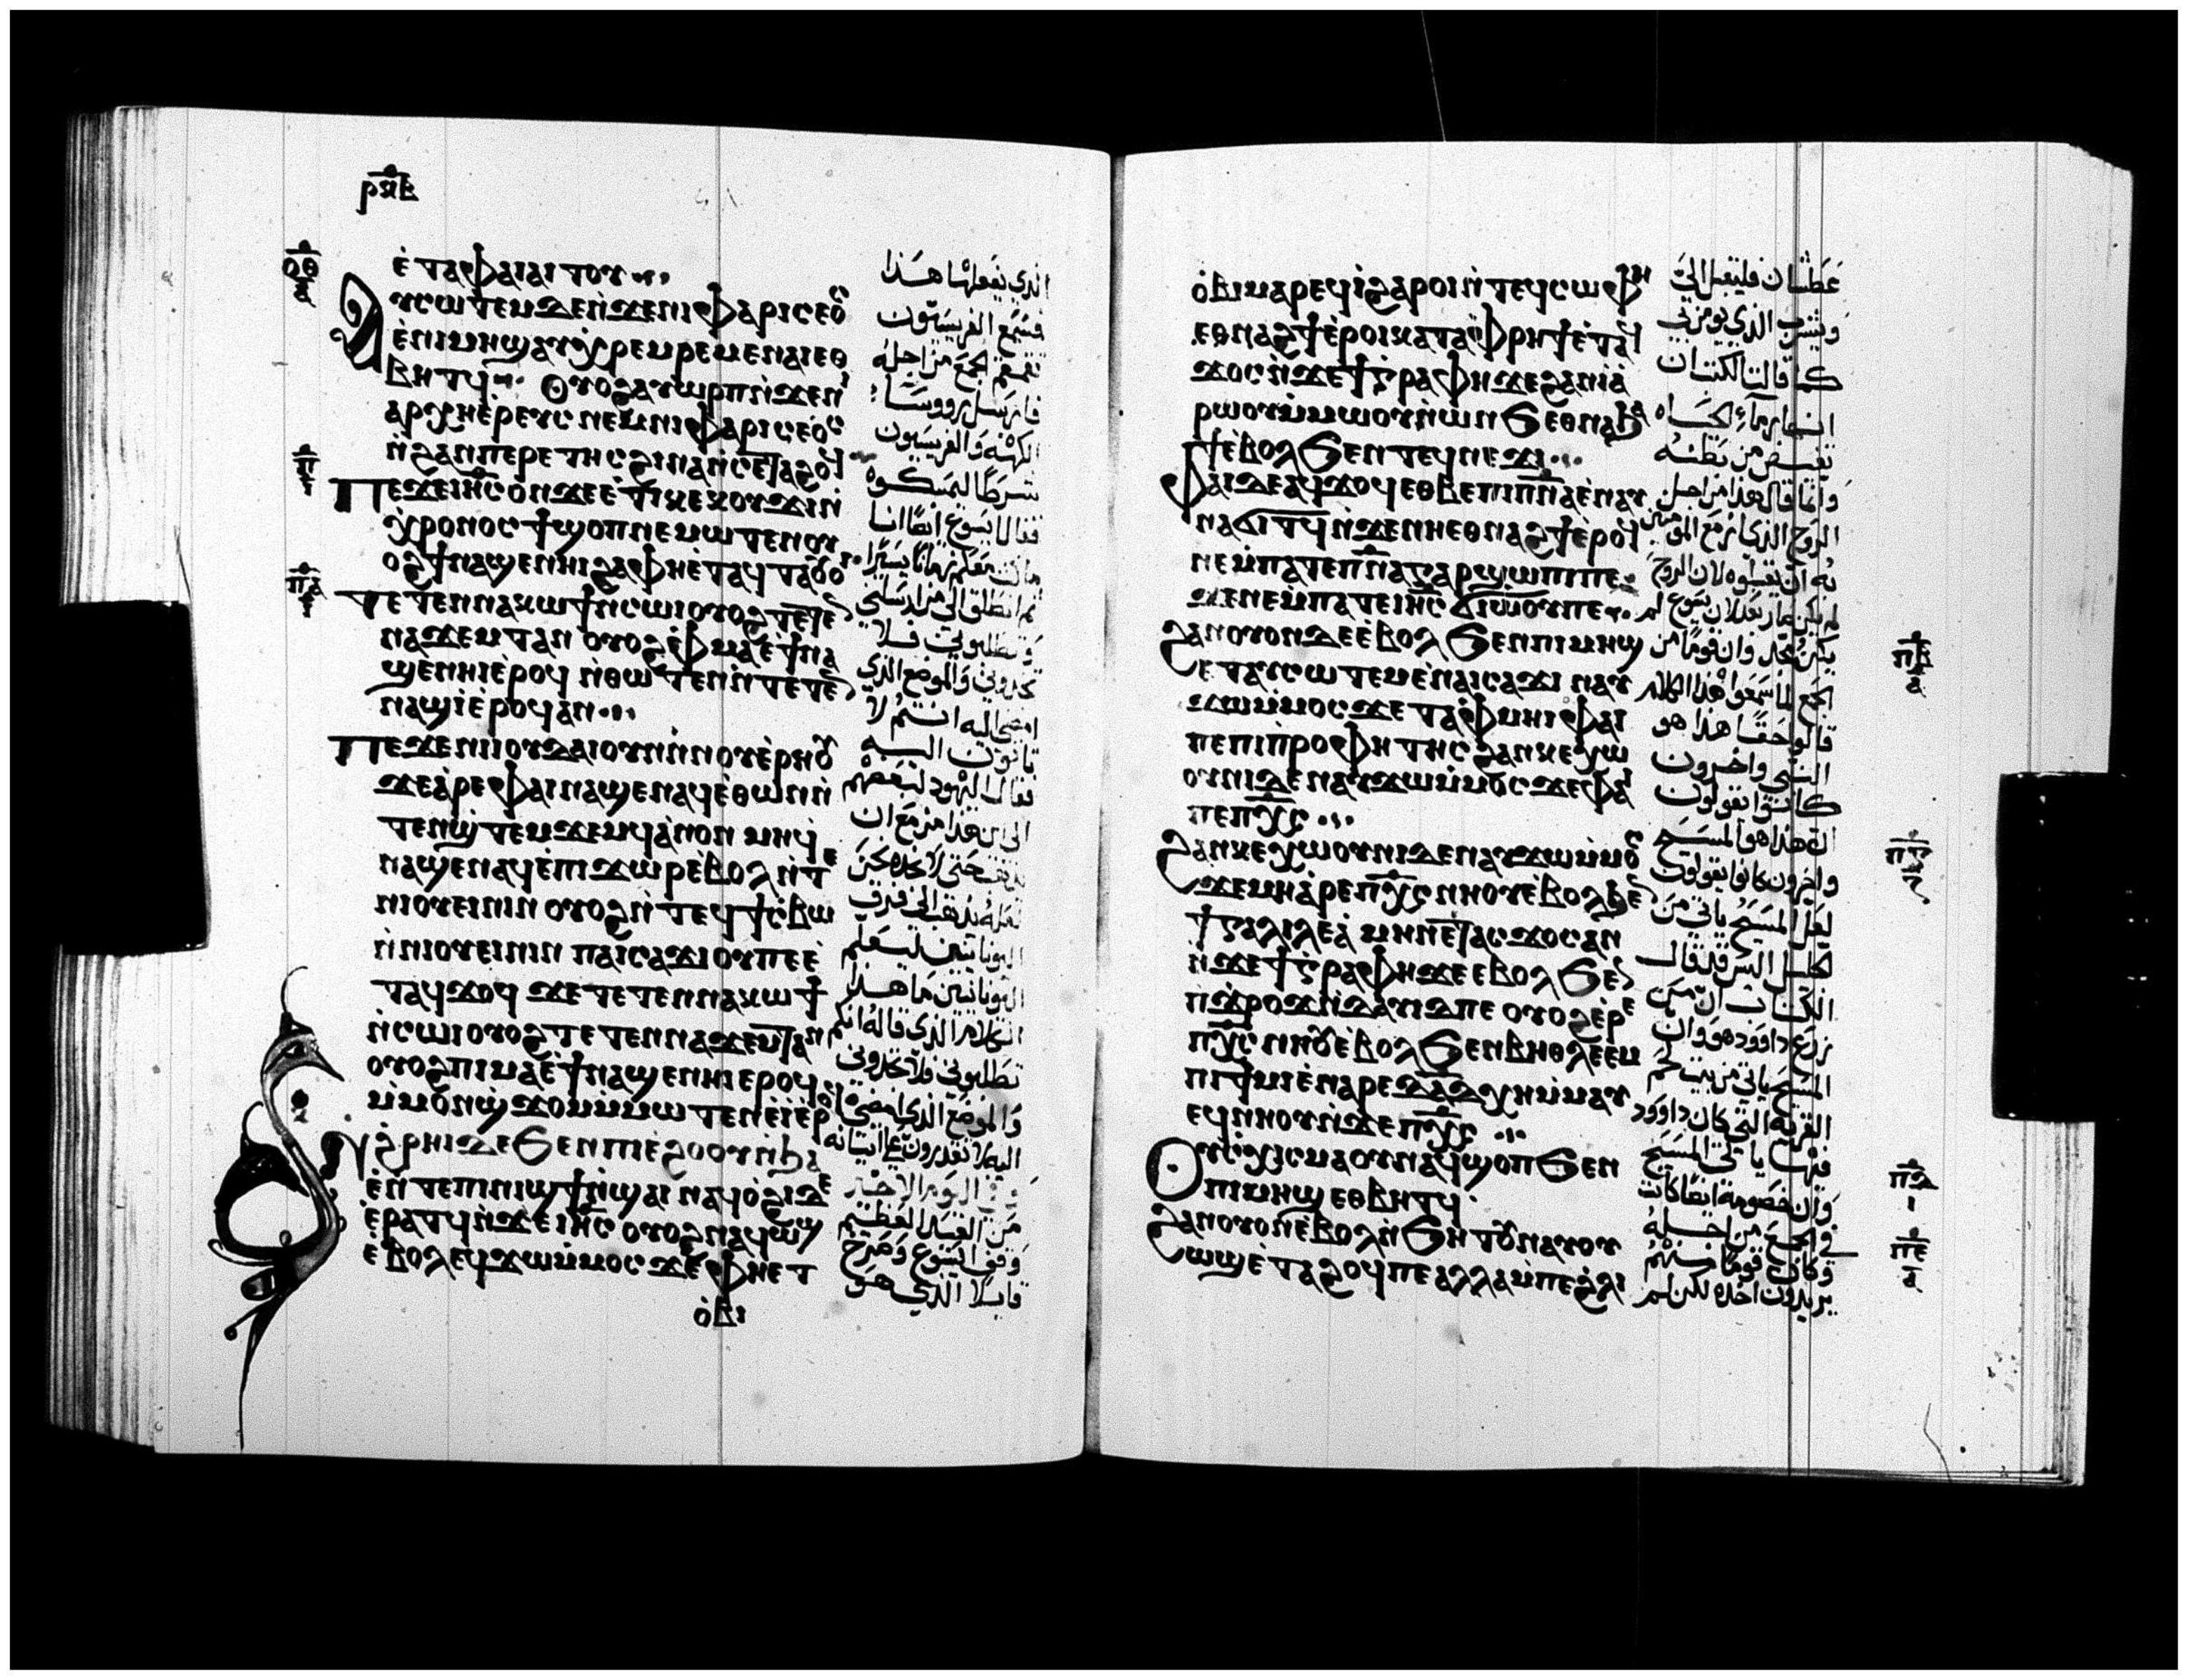 ⲣⲝⲃ
ⲟⲑ
ⲡ
ⲡⲁ
ⲉ̀ⲧⲁⲫⲁⲓⲁⲓⲧⲟⲩ
ⲁⲩⲥⲱⲧⲉⲙϫⲉⲛ̀ϫⲉⲛⲓⲫⲁⲣⲓⲥⲉⲟⲥ
ⲉ̀ⲡⲓⲙⲏϣⲁⲩⲭⲣⲉⲙⲣⲉⲙⲉⲛⲁⲓⲉⲑ
ⲃⲏⲧϥ ⲟⲩⲟϩⲁⲩⲱⲣⲡⲛ̀ϫⲉⲛⲓ
ⲁⲣⲭⲏⲉ̀ⲣⲉⲩⲥ ⲛⲉⲙⲛⲓⲫⲁⲣⲓⲥⲉⲟⲥ
ⲛ̀ϩⲁⲛⲡⲉⲣⲉⲧⲏⲥϩⲓⲛⲁⲛ̀ⲥⲉⲧⲁϩⲟϥ
ⲡⲉϫⲉⲓⲏⲥⲟⲛϫⲉⲉ̀ⲧⲓⲕⲉⲕⲟⲩϫⲓⲛ̀
ⲭⲣⲟⲛⲟⲥϯϣⲟⲡⲛⲉⲙⲱⲧⲉⲛⲟⲩ
ⲟϩϯⲛⲁϣⲉⲛⲏⲓϩⲁⲫⲏⲉ̀ⲧⲁϥⲧⲁⲟⲩⲟⲓ
ⲧⲉⲧⲉⲛⲛⲁⲕⲱϯⲛ̀ⲥⲱⲓⲟⲩⲟϩⲧⲉⲧⲉⲛ
ⲛⲁϫⲉⲙⲧⲁⲛ ⲟⲩⲟϩⲉ̀ⲫⲙⲁⲉ̀ϯⲛⲁ
ϣⲉⲛⲏⲓⲉ̀ⲣⲟϥ ⲛ̀ⲑⲱⲧⲉⲛⲛ̀ⲧⲉⲧⲉⲛ
ⲛⲁϣⲓ̀ⲉ̀ⲣⲟϥⲁⲛ
ⲡⲉϫⲉⲛⲓⲓⲟⲩⲇⲁⲓⲟⲩⲛⲛ̀ⲛⲟⲩⲉ̀ⲣⲏⲟⲩ
ϫⲉⲁ̀ⲣⲉⲫⲁⲓⲛⲁϣⲉⲛⲁϥⲉ̀ⲑⲱⲛⲛ̀
ⲧⲉⲛϣ̀ⲧⲉⲙϫⲉⲙϥⲁ̀ⲛⲟⲛ ⲙⲏϥ
ⲛⲁϣⲉⲛⲁϥⲉ̀ⲡⲓϫⲱⲣⲉⲃⲟⲗⲛ̀ⲧⲉ
ⲛⲓⲟⲩⲉⲓⲛⲓⲛ ⲟⲩⲟϩⲛ̀ⲧⲉϥϯⲥ̀ⲃⲱ
ⲛ̀ⲛⲓⲟⲩⲉⲓⲛⲓⲛ ⲡⲁⲓⲥⲁϫⲓⲟⲩⲡⲉⲉ̀
ⲧⲁϥϫⲟϥ ϫⲉⲧⲉⲧⲉⲛⲛⲁⲕⲱϯ
ⲛ̀ⲥⲱⲓⲟⲩⲟϩⲧⲉⲧⲉⲛⲛⲁϫⲉⲙⲧⲁⲛ
ⲟⲩⲟϩⲡⲓⲙⲁⲉ̀ϯⲛⲁϣⲉⲛⲏⲓⲉⲣⲟϥ
ⲙ̀ⲙⲟⲛϣ̀ϫⲟⲙⲙ̀ⲙⲱⲧⲉⲛⲉ̀ⲓ̀ⲉ̀ⲣⲟϥ
ⲛϩ̀ⲣⲏⲓⲇⲉϧⲉⲛⲡⲓⲉ̀ϩⲟⲟⲩⲛ̀ϧⲁ
ⲉ̀ⲛⲧⲉⲡⲓⲛⲓϣϯⲛ̀ϣⲁⲓ ⲛⲁϥⲟ̀ϩⲓⲇⲉ
ⲉ̀ⲣⲁⲧϥⲛ̀ϫⲉⲓⲏⲥ ⲟⲩⲟϩⲛⲁϥⲱϣ
ⲉ̀ⲃⲟⲗⲉϥϫⲱⲙ̀ⲙⲟⲥ ϫⲉⲫⲏⲉⲧ
ⲟ̀ⲃⲓ
الذي يفعلها هذا
فسمع الفريسيون
تقمقم الجمع من اجله
فارسل رووسا
الكهنة والفريسيون
شرطا ليمسكوه
فقال يسوع ايضا انا
ماكث معكم زمانا يسيرا
ثم انطلق الى من ارسلني
وتطلبوني فلا
تجدوني والموضع الذي
امضي اليه انتم لا
تاتون اليه
فقال اليهود لبعضهم
الى اين هذا مزمع ان
يذهب حتى لا نجده نحن
لعله يذهب الى فرق
اليونانيين ليعلم
اليونانيين ما هذا
الكلام الذي قاله انكم
تطلبوني فلا تجدوني
والموضع الذي امضي
اليه لا تقدرون على اتيانه
وفي اليوم الاخير
من العيد العظيم
وقف يسوع وصرخ
قايلا الذي هو
ⲟ̀ⲃⲓⲙⲁⲣⲉϥⲓ̀ϩⲁⲣⲟⲓⲛ̀ⲧⲉϥⲥⲱⲫⲏ
ⲉⲑⲛⲁϩϯⲉ̀ⲣⲟⲓⲕⲁⲧⲁⲫⲣⲏϯⲉ̀ⲧⲁ
ϫⲟⲥⲛ̀ϫⲉϯⲅⲣⲁⲫⲏϫⲉϩⲁⲛⲓⲁ̀
ⲣⲱⲟⲩⲙ̀ⲙⲱⲟⲩⲛ̀ⲱⲛϧⲉⲑⲛⲁϧⲁ
ϯⲉ̀ⲃⲟⲗϧⲉⲛⲧⲉϥⲛⲉϫⲓ
ⲫⲁⲓⲇⲉⲁϥϫⲟϥⲉⲑⲃⲉⲡⲓⲡⲛⲁⲉ̀ⲛⲁⲩ
ⲛⲁϭⲓⲧϥⲛ̀ϫⲉⲛⲏⲉⲑⲛⲁϩϯⲉ̀ⲣⲟϥ
ⲛⲉⲙ̀ⲡⲁⲧⲉⲡⲛⲁⲅⲁⲣϣⲱⲡⲓⲡⲉ
ϫⲉⲛⲉⲙ̀ⲡⲁⲧⲉⲓⲏⲥ ϭⲓⲱ̀ⲟⲩⲡⲉ
ϩⲁⲛⲟⲩⲟⲛⲇⲉⲉ̀ⲃⲟⲗϧⲉⲛⲡⲓⲙⲏϣ
ⲉⲧⲁⲩⲥⲱⲧⲉⲙⲉ̀ⲛⲁⲓⲥⲁϫⲓ ⲛⲁⲩ
ϫⲱⲙ̀ⲙⲟⲥϫⲉⲧⲁⲫⲙⲏⲓⲫⲁⲓ
ⲡⲉⲡⲓⲡⲣⲟⲫⲏⲧⲏⲥϩⲁⲛⲕⲉⲭⲱ
ⲟⲩⲛⲓⲇⲉⲛⲁⲩϫⲱⲙ̀ⲙⲟⲥϫⲉⲫⲁⲓ
ⲡⲉⲡⲭⲥ
ϩⲁⲛⲕⲉⲭⲱⲟⲩⲛⲓⲇⲉⲛⲁⲩϫⲱⲙ̀ⲙⲟⲥ
ϫⲉⲙⲏⲁ̀ⲣⲉⲡⲭⲥⲛⲛⲟⲩⲉ̀ⲃⲟⲗϧⲉⲛ
ϯⲅⲁⲗⲓⲗⲉⲁ̀ ⲙⲏⲡⲉⲧⲁⲥϫⲟⲥⲁⲛ
ⲛ̀ϫⲉϯⲅⲣⲁⲫⲏϫⲉⲉⲃⲟⲗϧⲉⲛ
ⲡ̀ϫⲣⲟϫⲛ̀ⲇⲁⲩⲓⲇⲡⲉ ⲟⲩⲟϩⲉ̀ⲣⲉ
ⲡⲭⲥⲛⲏⲟⲩⲉ̀ⲃⲟⲗϧⲉⲛⲃⲏⲑⲗⲉⲉⲙ
ⲡⲓϯⲙⲓⲉ̀ⲛⲁⲣⲉⲇⲁⲇⲭⲏⲙ̀ⲙⲁⲩ
ⲉϥⲛⲏⲟⲩⲛ̀ϫⲉⲡⲭⲥ
ⲟⲩⲥⲭⲓⲥⲙⲁⲟⲩⲛⲁϥϣⲟⲡϧⲉⲛ
ⲡⲓⲙⲏϣⲉⲑⲃⲏⲧϥ
ϩⲁⲛⲟⲩⲟⲛⲉ̀ⲃⲟⲗⲛ̀ϧⲏⲧⲟⲩⲛⲁⲩⲟⲩ
ⲱϣⲉ̀ⲧⲁϩⲟϥⲡⲉⲁⲗⲗⲁⲙ̀ⲡⲉϩ̀ⲗⲓ
عطشان فليقبل الي
ويشرب الذي يومن بي
كما قالت الكتب ان
انهار ماء الحياه
تفيض من بطنه
وانما قال هذا من اجل
الروح الذي ازمع المومنين
به ان يقبلوه لان الروح
لم يكن صار بعد لان يسوع لم
يكن تمجد وان قوما من
الجمع لما سمعوا هذا الكلام
قالوا حقا هذا هو
النبي واخرون
كانوا يقولون
ان هذا هو المسيح
واخرون كانوا يقولون
لعل المسيح ياتي من
الجليل اليس قد قال
الكتاب ان من
زرع داوود هو وان
المسيح ياتي من بيت لحم
القرية التي كان داوود
فيها ياتي المسيح
وان خصومة ايضا كانت
في الجمع من اجله
وكان قوما منهم
يريدون اخذه لكن لم
ⲡⲃ
ⲡⲅ
ⲡⲇ
ⲡⲉ